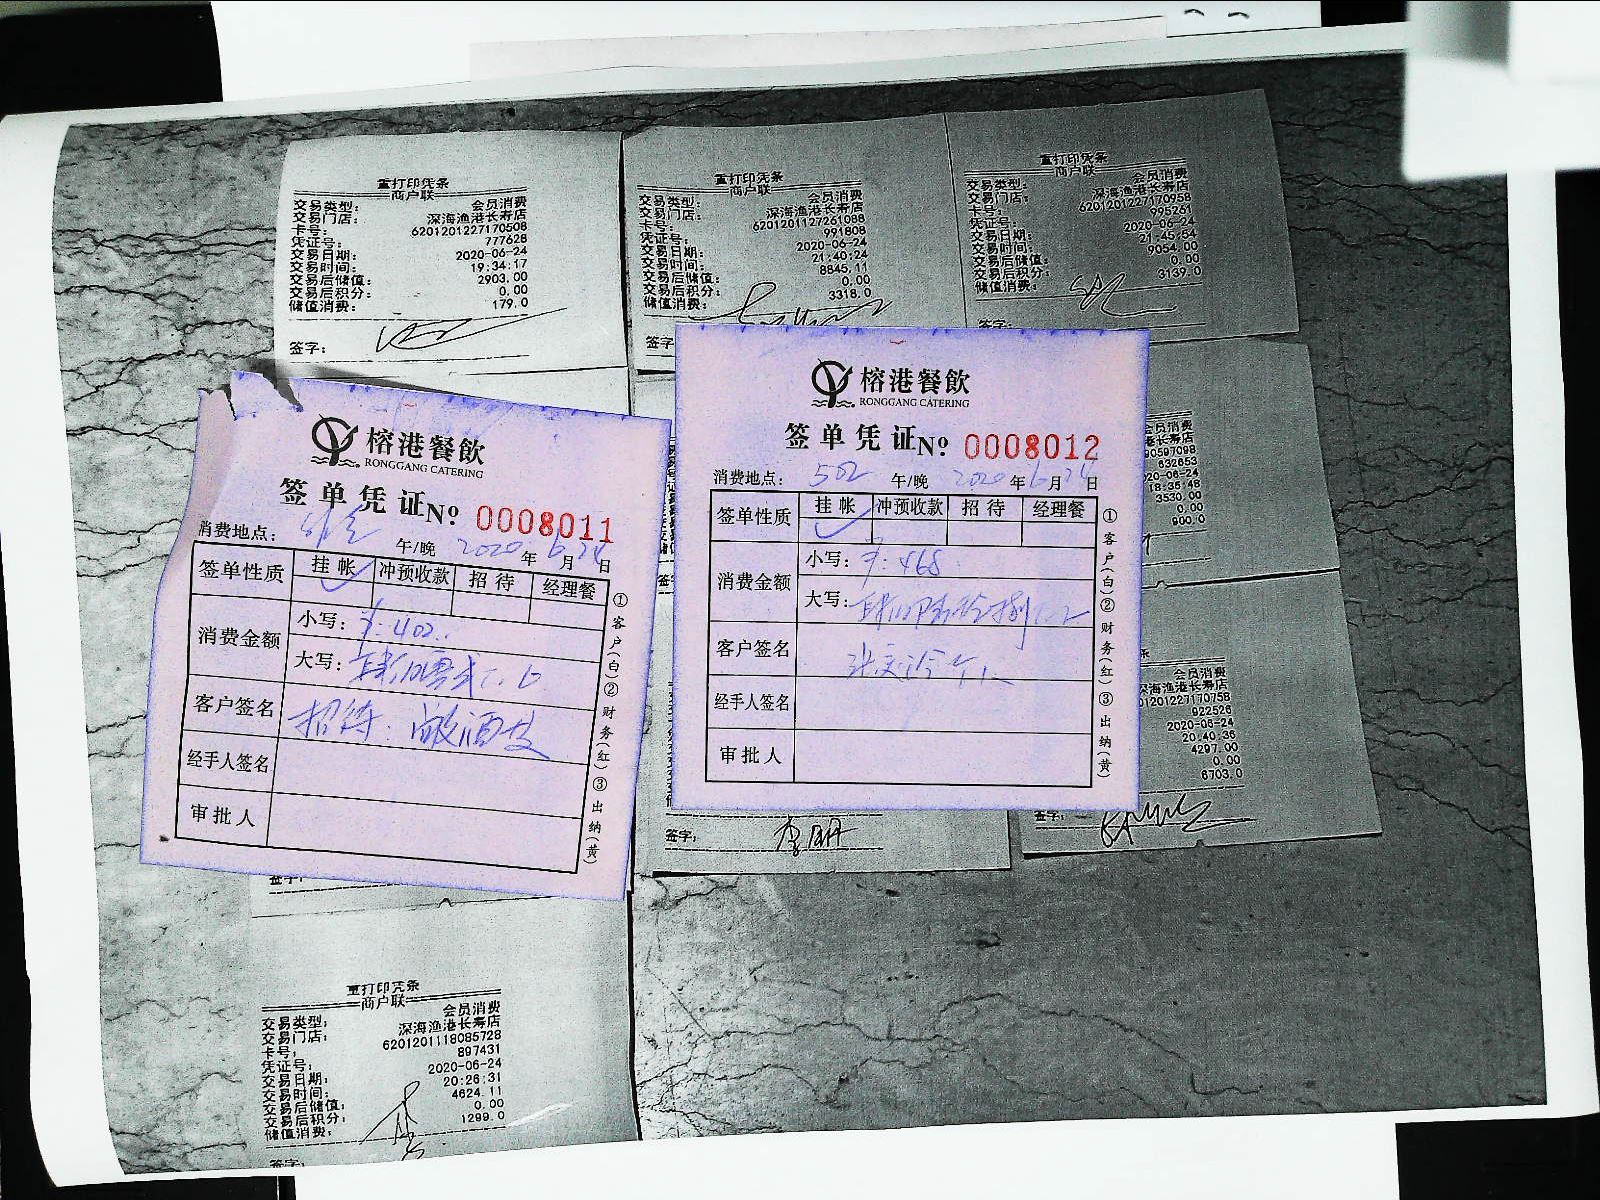 重打印凭条
商户联
交易类型： 会员消费
交易门店： 深海渔港长寿店
卡号： 6201201227170508
凭证号： 777628
交易日期： 2020-06-24
交易时间： 19:34:17
交易后储值： 2903.00
交易后积分： 0.00
储值消费： 179.0
签字：
重打印凭条
商户联
交易类型： 会员消费
交易门店： 深海渔港长寿店
卡号： 6201201127261088
凭证号： 991808
交易日期： 2020-06-24
交易时间： 21:40:24
交易后储值： 8845.11
交易后积分： 0.00
储值消费： 3318.0
签字
重打印凭条
商户联
交易类型： 会员消费
交易门店： 深海渔港长寿店
卡号： 6201201227170958
凭证号： 995261
交易日期： 2020-06-24
交易时间： 21:45:54
交易后储值： 9054.00
交易后积分： 0.00
储值消费： 3139.0
签字：
榕港餐飲
RONGGANG CATERING
签单凭证 № 0008011
消费地点： 午/晚 2020年6月24日
签单性质 挂帐 冲预收款 招待 经理餐
消费金额 小写：¥:402
大写：
客户签名 招待：
经手人签名
审批人
①客户(白)②财务(红)③出纳(黄)
榕港餐飲
RONGGANG CATERING
签单凭证 № 0008012
消费地点：502 午/晚 2020年6月24日
签单性质 挂帐 冲预收款 招待 经理餐
消费金额 小写：¥:468
大写：
客户签名
经手人签名
审批人
①客户(白)②财务(红)③出纳(黄)
会员消费
长寿店
90597098
632653
20-06-24
18:36:48
3530.00
0.00
900.0
会员消费
深海渔港长寿店
01201227170758
922526
2020-06-24
20:40:36
4297.00
0.00
6703.0
签字：
签字： 李明
签字：
重打印凭条
商户联
交易类型： 会员消费
交易门店： 深海渔港长寿店
卡号： 6201201118085728
凭证号： 897431
交易日期： 2020-06-24
交易时间： 20:26:31
交易后储值： 4624.11
交易后积分： 0.00
储值消费： 1299.0
签字：